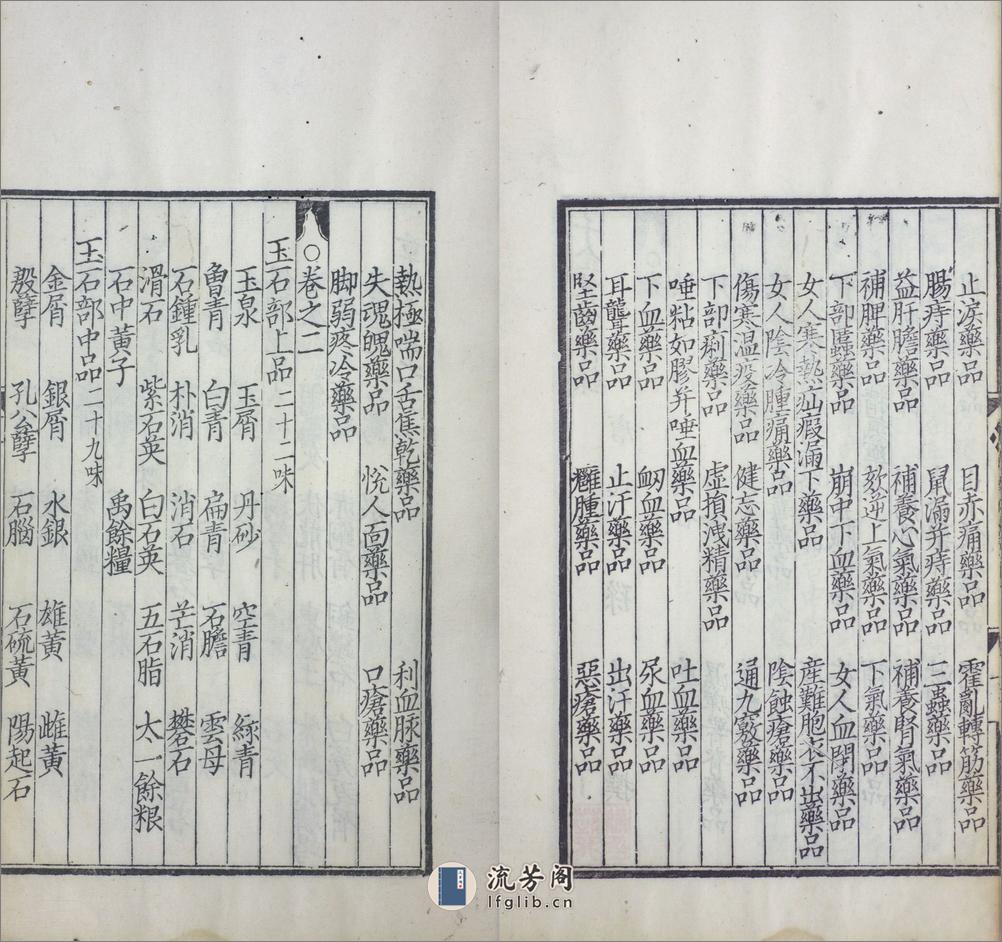 止淚藥品 目赤痛藥品 霍亂轉筋藥品
腸痔藥品 鼠漏并痔藥品 三蟲藥品
益肝膽藥品 補養心氣藥品 補養腎氣藥品
補脾藥品 欬逆上氣藥品 下氣藥品
下部䘌藥品 崩中下血藥品 女人血閉藥品
女人寒熱疝瘕漏下藥品 産難胞衣不出藥品
女人陰冷腫痛藥品 陰蝕瘡藥品
傷寒温疫藥品 健忘藥品 通九竅藥品
下部痢藥品 虛損洩精藥品
唾粘如膠并唾血藥品 吐血藥品
下血藥品 衂血藥品 尿血藥品
耳聾藥品 止汗藥品 出汗藥品
堅齒藥品 癰腫藥品 惡瘡藥品
熱極喘口舌焦乾藥品 利血脉藥品
失魂魄藥品 悅人面藥品 口瘡藥品
脚弱疼冷藥品
○卷之二
玉石部上品二十二味
玉泉 玉屑 丹砂 空青 綠青
曾青 白青 扁青 石膽 雲母
石鍾乳 朴消 消石 芒消 礬石
滑石 紫石英 白石英 五石脂 太一餘粮
石中黃子 禹餘糧
玉石部中品二十九味
金屑 銀屑 水銀 雄黃 雌黃
殷孽 孔公孽 石腦 石硫黃 陽起石
流芳阁
lfglib.cn